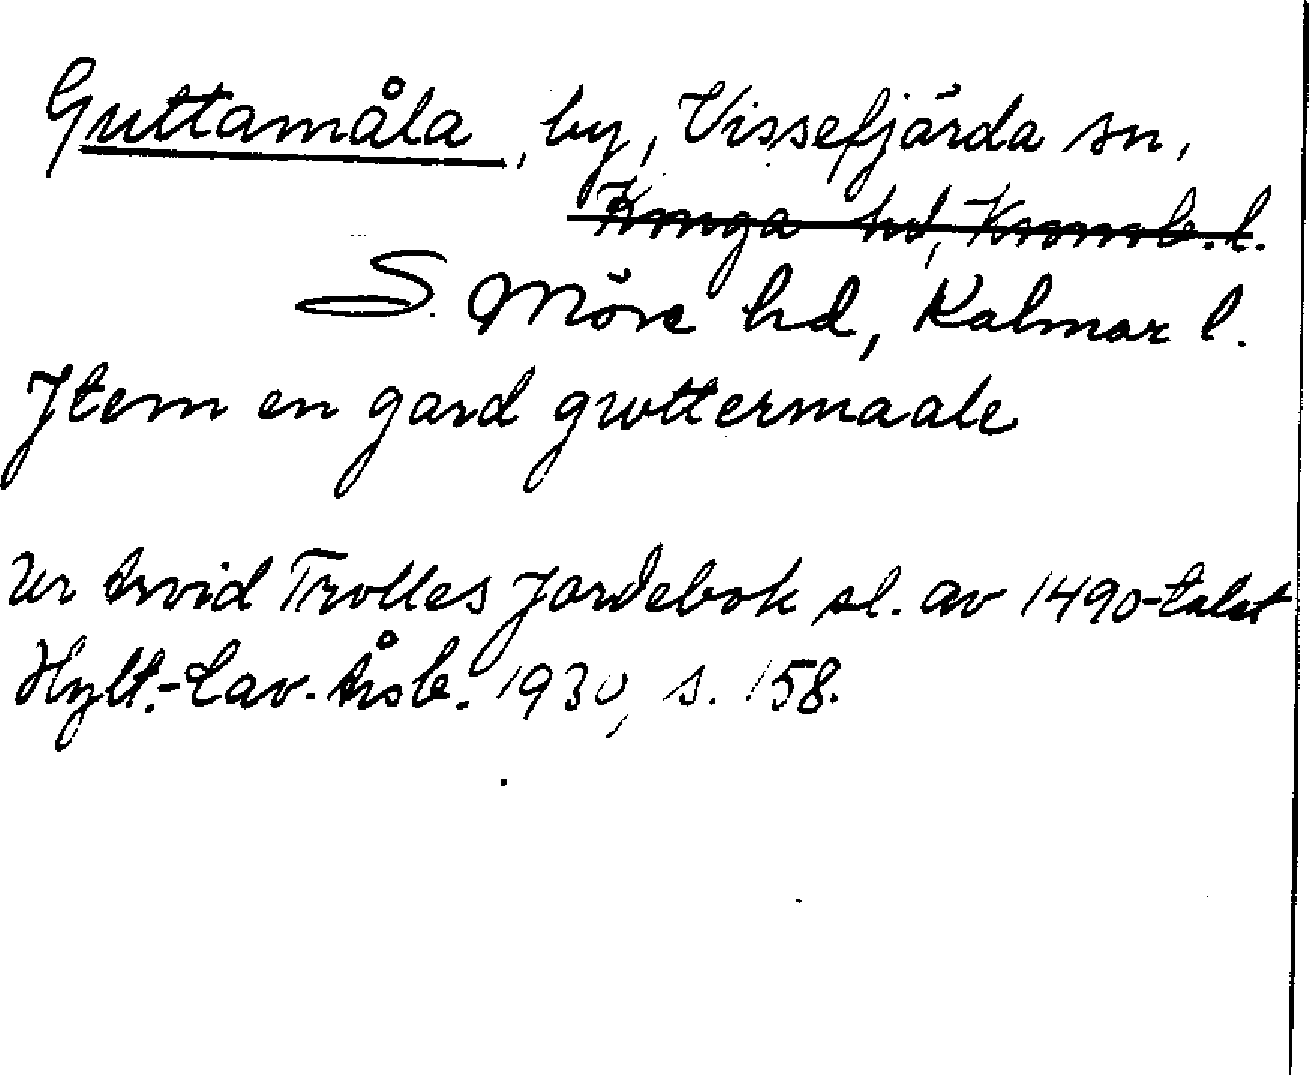 Guttamåla, by, Vissefjärda sn,
Konga hd, Kronob. l.
S. Möre hd, Kalmar l.
Item en gard guttermaale
Ur Arvid Trolles Jordebok sl. av 1490-talet
Hylt.-Cav. Årsb. 1930, s. 158.